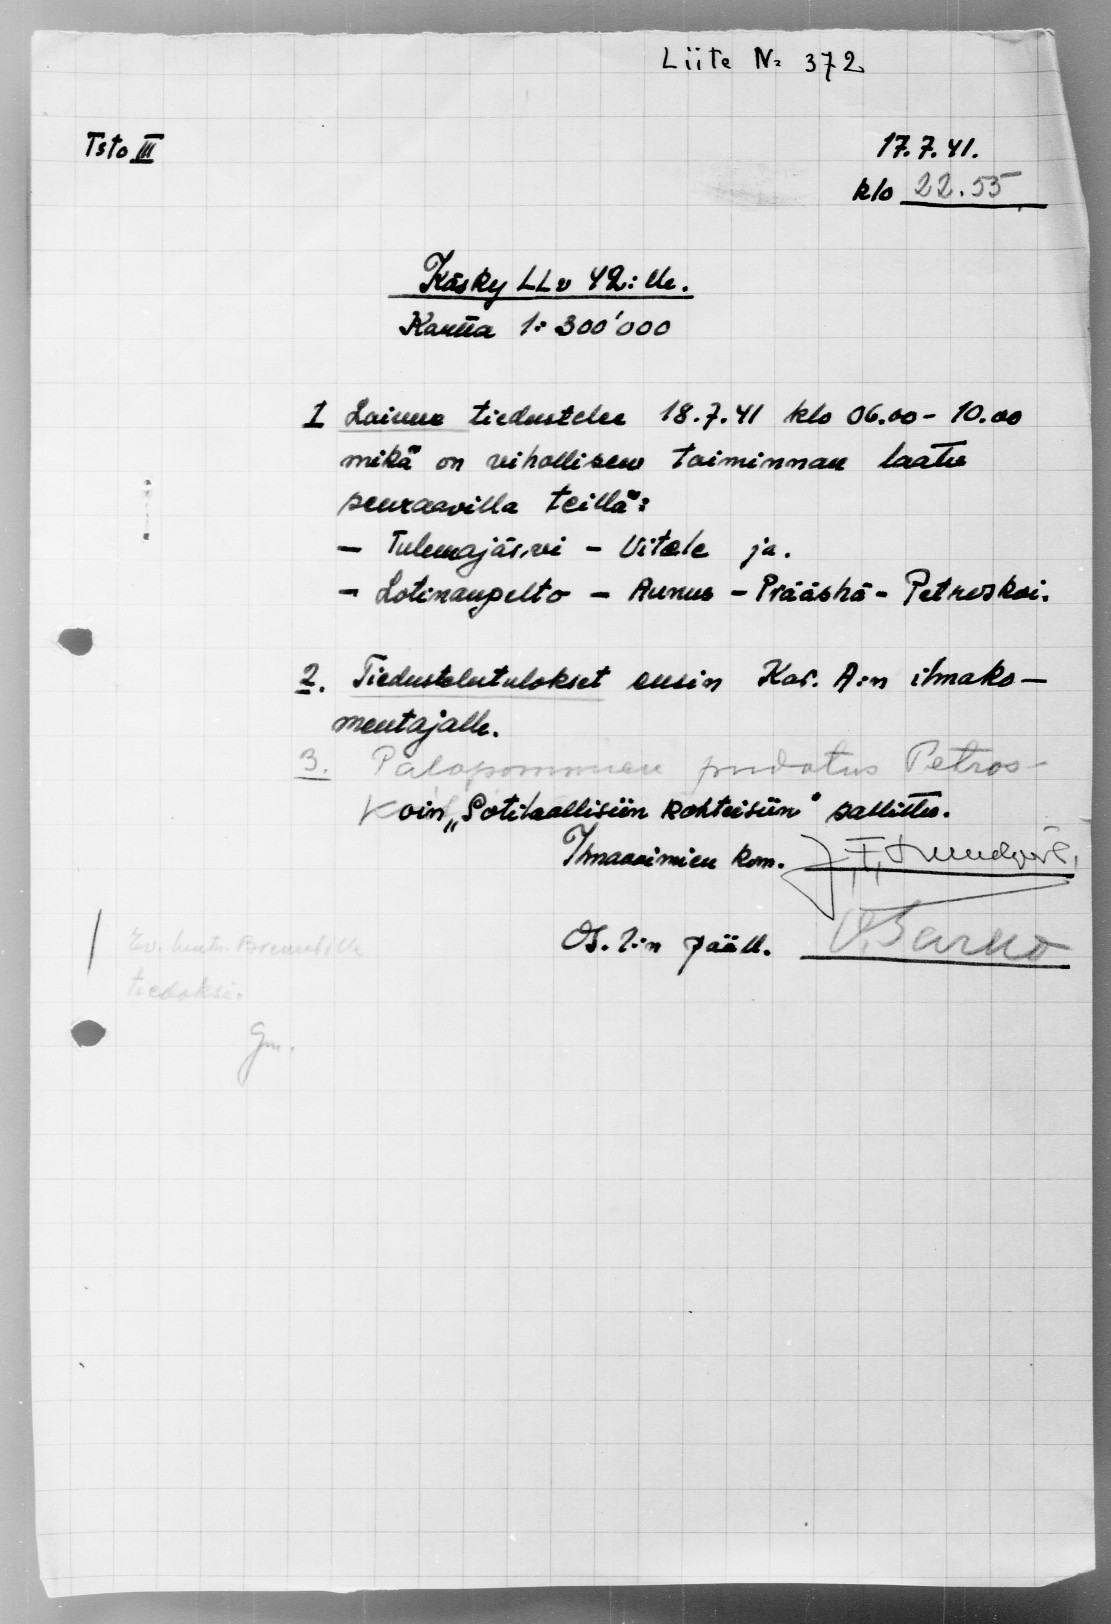 Liite No 372
Tsto III
17.7.41.
klo 22.55
Käsky LLv 42:lle.
Kartta 1:300'000
1 Laivue tiedustelee 18.7.41 klo 06.00 - 10.00
mikä on vihollisen toiminnan laatu
seuraavilla teillä:
- Tulemajärvi - Vitele ja.
- Lotinanpelto - Aunus - Prääshä - Petroskoi.
2. Tiedustelutulokset ensin Kar. A:n ilmako-
mentajalle.
3. Palopommien pudotus Petros-
koin „Sotilaallisiin kohteisiin" sallittu.
Ilmavoimien kom. J.F. Lundqvist.
Os. 1:n pääll.
Ev. luutn. Bremerille
tiedoksi.